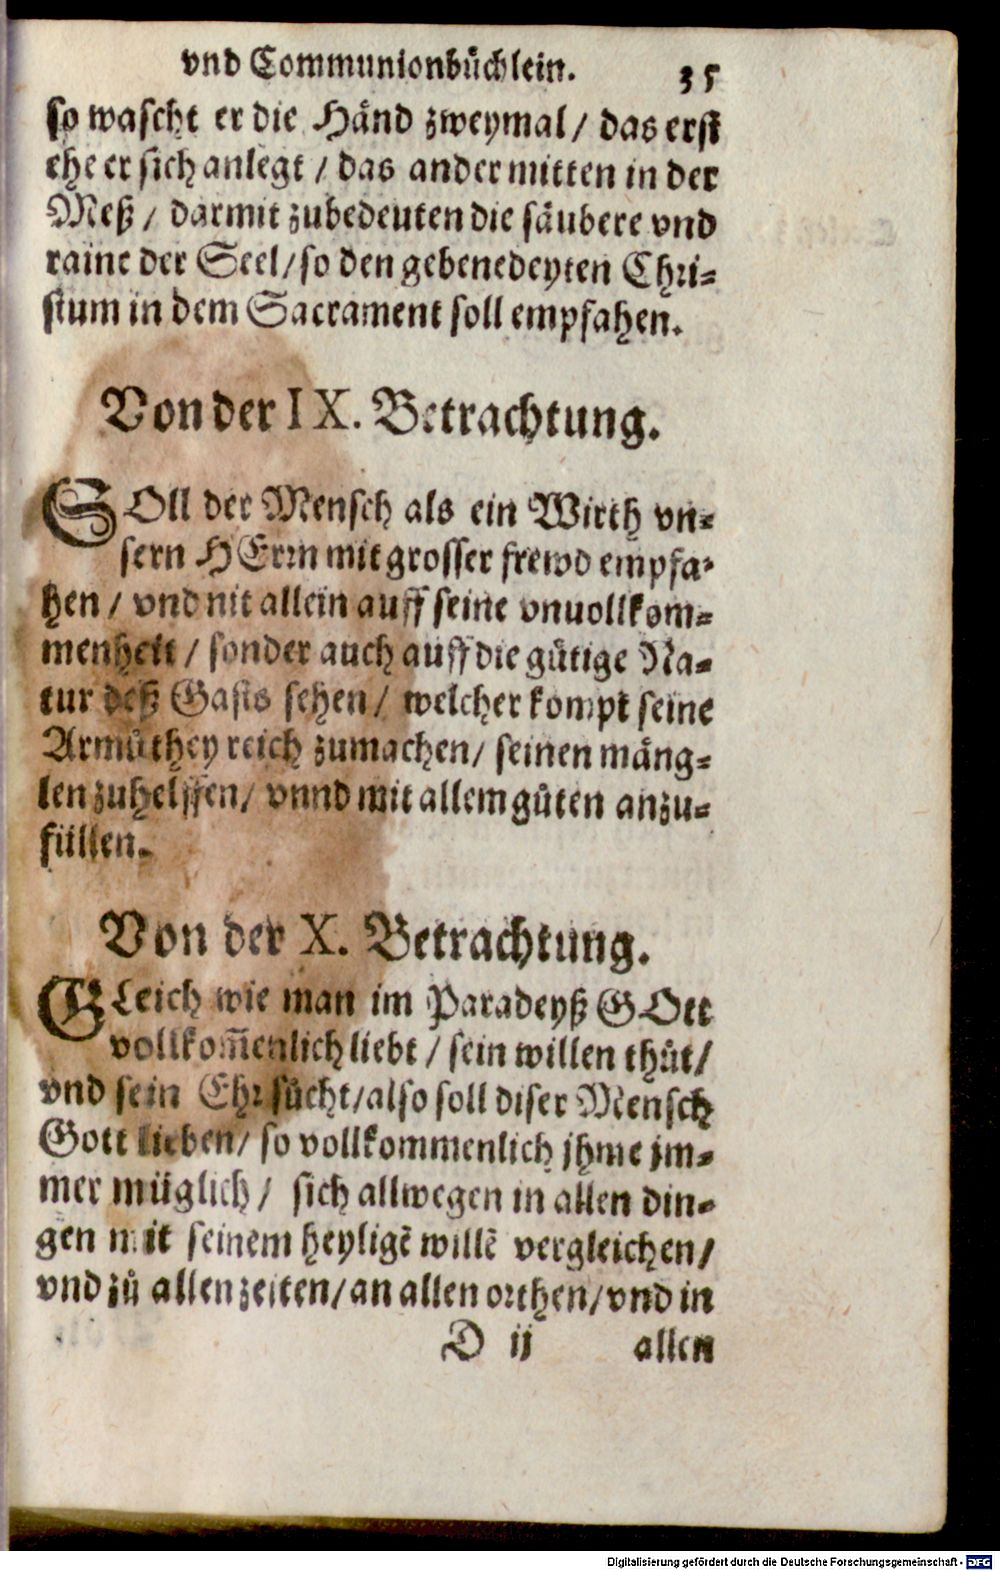 vnd Communionbůchlein. 35
so wascht er die Händ zweymal / das erst
ehe er sich anlegt / das ander mitten in der
Meß / darmit zubedeuten die säubere vnd
raine der Seel/ so den gebenedeyten Chri-
stum in dem Sacrament soll empfahen.
Von der IX. Betrachtung.
SOll der Mensch als ein Wirth vn-
sern HErrn mit grosser frewd empfa-
hen / vnd nit allein auff seine vnuollkom-
menheit / sonder auch auff die gütige Na-
tur deß Gasts sehen / welcher kompt seine
Armůthey reich zumachen/ seinen mäng-
len zuhelffen/ vnnd mit allem gůten anzu-
füllen.
Von der X. Betrachtung.
GLeich wie man im Paradeyß GOtt
vollkom̃enlich liebt / sein willen thůt/
vnd sein Ehr sůcht/also soll diser Mensch
Gott lieben/ so vollkommenlich jhme jm-
mer müglich / sich allwegen in allen din-
gen mit seinem heyligẽ willẽ vergleichen/
vnd zů allen zeiten/an allen orthen/vnd in
D ij allen
Digitalisierung gefördert durch die Deutsche Forschungsgemeinschaft - DFG